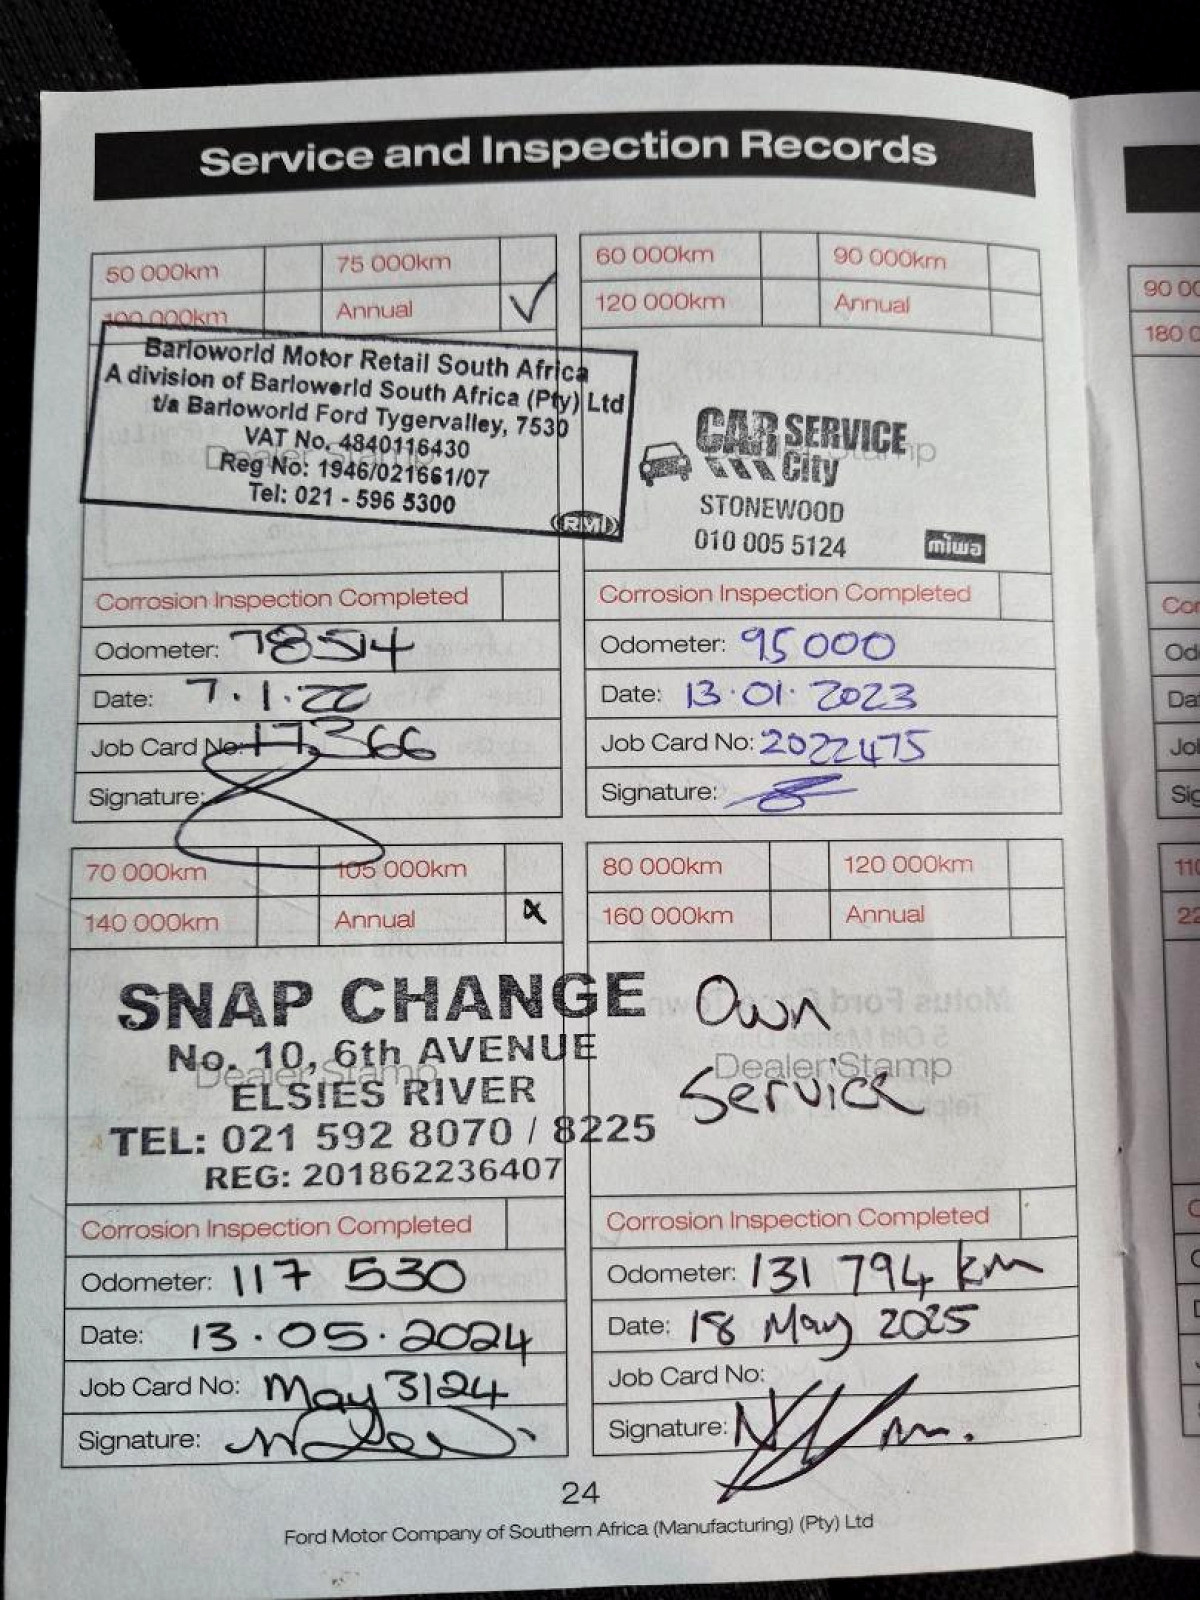 Service and Inspection Records
50 000km 75 000km
100 000km Annual ✓
Barloworld Motor Retail South Africa
A division of Barloworld South Africa (Pty) Ltd
t/a Barloworld Ford Tygervalley, 7530
VAT No. 4840116430
Reg No: 1946/021661/07
Tel: 021 - 596 5300
RMI
Corrosion Inspection Completed
Odometer: 78514
Date: 7.1.22
Job Card No: 17366
Signature:
60 000km 90 000km
120 000km Annual
CAR SERVICE
City
STONEWOOD
010 005 5124
miwa
Corrosion Inspection Completed
Odometer: 95000
Date: 13.01.2023
Job Card No: 2022475
Signature:
70 000km 105 000km
140 000km Annual x
SNAP CHANGE
No. 10, 6th AVENUE
Dealer Stamp
ELSIES RIVER
TEL: 021 592 8070 / 8225
REG: 201862236407
Corrosion Inspection Completed
Odometer: 117 530
Date: 13.05.2024
Job Card No: May 3124
Signature:
80 000km 120 000km
160 000km Annual
Own
Dealer Stamp
Service
Corrosion Inspection Completed
Odometer: 131 794 km
Date: 18 May 2025
Job Card No:
Signature:
24
Ford Motor Company of Southern Africa (Manufacturing) (Pty) Ltd
90 00
180 0
Cor
Od
Da
Jo
Sig
110
22